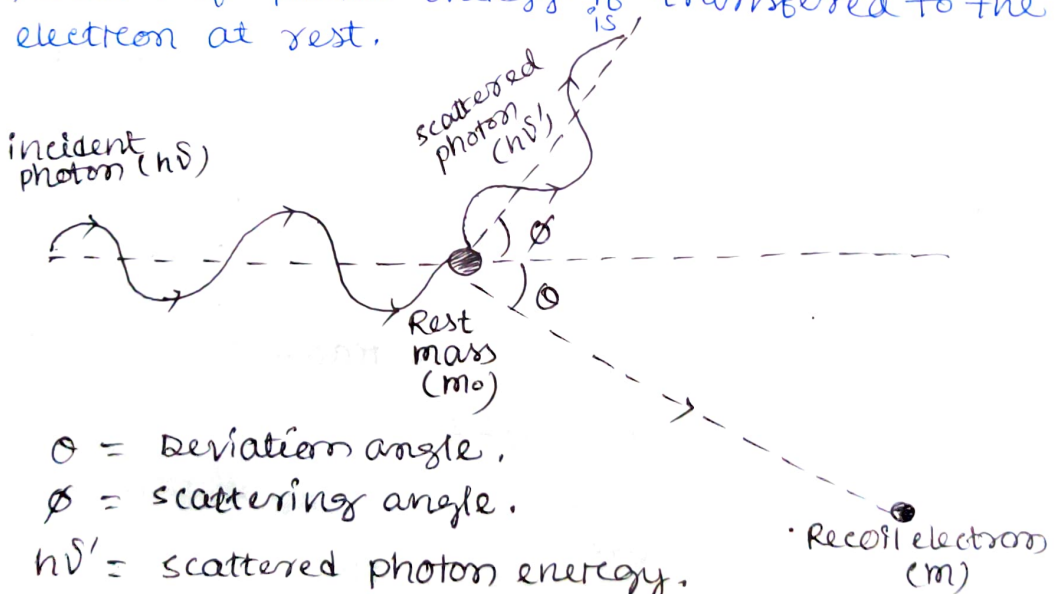 energy is transfered to the
electreon at rest.
is
scattered
photon
(hδ')
incident
photon (hδ)
ø
θ
Rest
mass
(m₀)
θ = Deviation angle.
ø = scattering angle.
hδ' = scattered photon eneregy.
Recoil electron
(m)